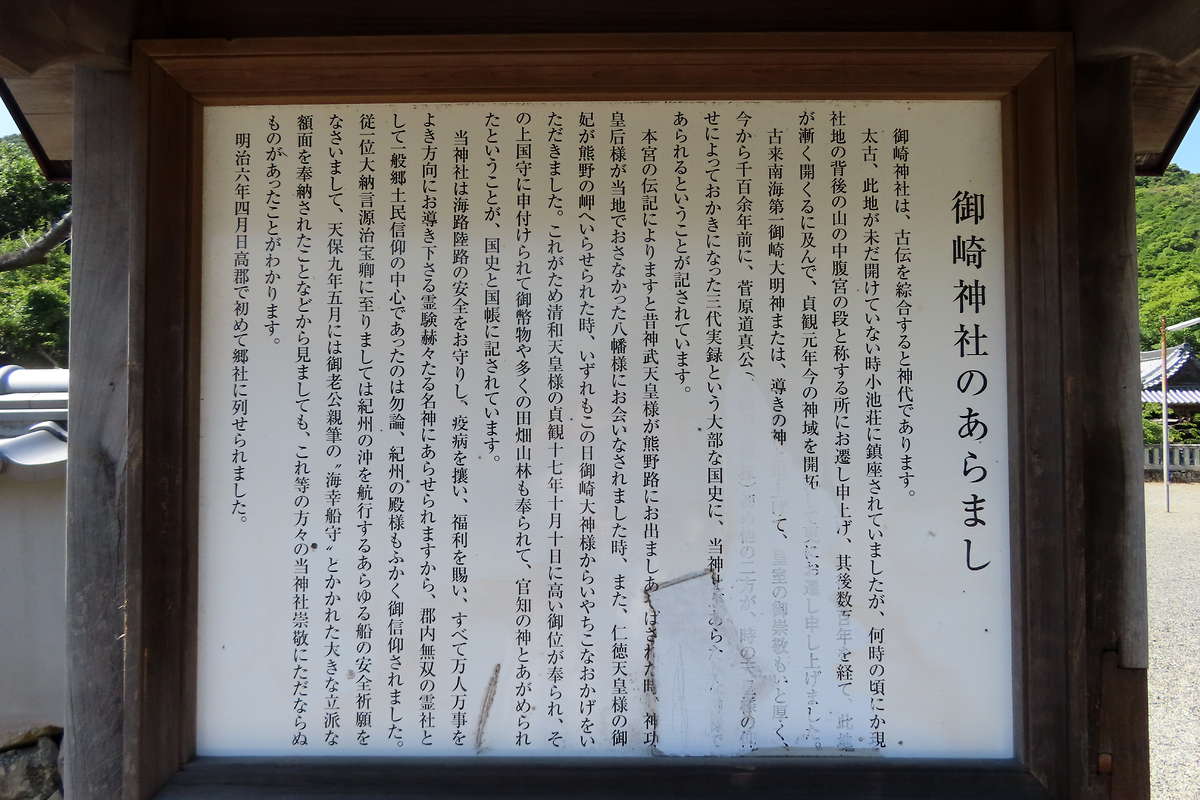 御崎神社のあらまし
御崎神社は、古伝を綜合すると神代であります。
太古、此地が未だ開けていない時小池荘に鎮座されていましたが、何時の頃にか現
社地の背後の山の中腹宮の段と称する所にお遷し申上げ、其後数百年を経て、此地
が漸く開くるに及んで、貞観元年今の神域を開拓しお遷し申し上げました。
古来南海第一御崎大明神または、導きの神て、皇室の御崇敬もいと厚く、
今から千百余年前に、菅原道真公、他の二方が、時の
せによっておかきになった三代実録という大部な国史に、当神あらた
あられるということが記されています。
本宮の伝記によりますと昔神武天皇様が熊野路にお出ましあそばされた時、神功
皇后様が当地でおさなかった八幡様にお会いなされました時、また、仁徳天皇様の御
妃が熊野の岬へいらせられた時、いずれもこの日御崎大神様からいやちこなおかげをい
ただきました。これがため清和天皇様の貞観十七年十月十日に高い御位が奉られ、そ
の上国守に申付けられて御幣物や多くの田畑山林も奉られて、官知の神とあがめられ
たということが、国史と国帳に記されています。
当神社は海路陸路の安全をお守りし、疫病を攘い、福利を賜い、すべて万人万事を
よき方向にお導き下さる霊験赫々たる名神にあらせられますから、郡内無双の霊社と
して一般郷土民信仰の中心であったのは勿論、紀州の殿様もふかく御信仰されました。
従一位大納言源治宝卿に至りましては紀州の沖を航行するあらゆる船の安全祈願を
なさいまして、天保九年五月には御老公親筆の〝海幸船守〟とかかれた大きな立派な
額面を奉納されたことなどから見ましても、これ等の方々の当神社崇敬にただならぬ
ものがあったことがわかります。
明治六年四月日高郡で初めて郷社に列せられました。